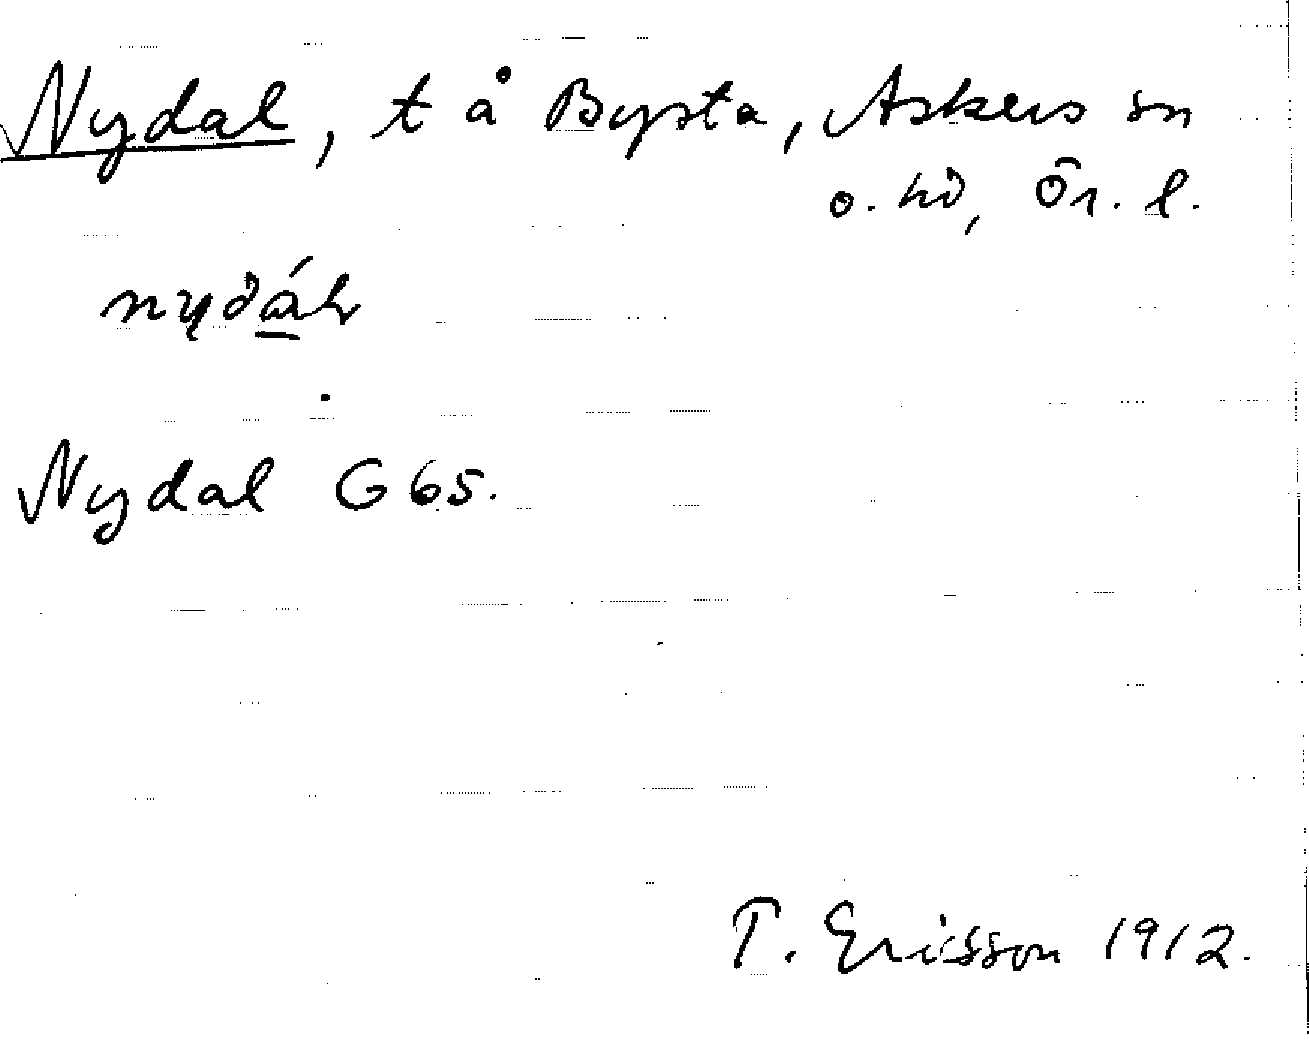 Nydal, t å Bysta, Askers sn
o. hd, Ör. l.
Nydal G 65.
T. Ericsson 1912.